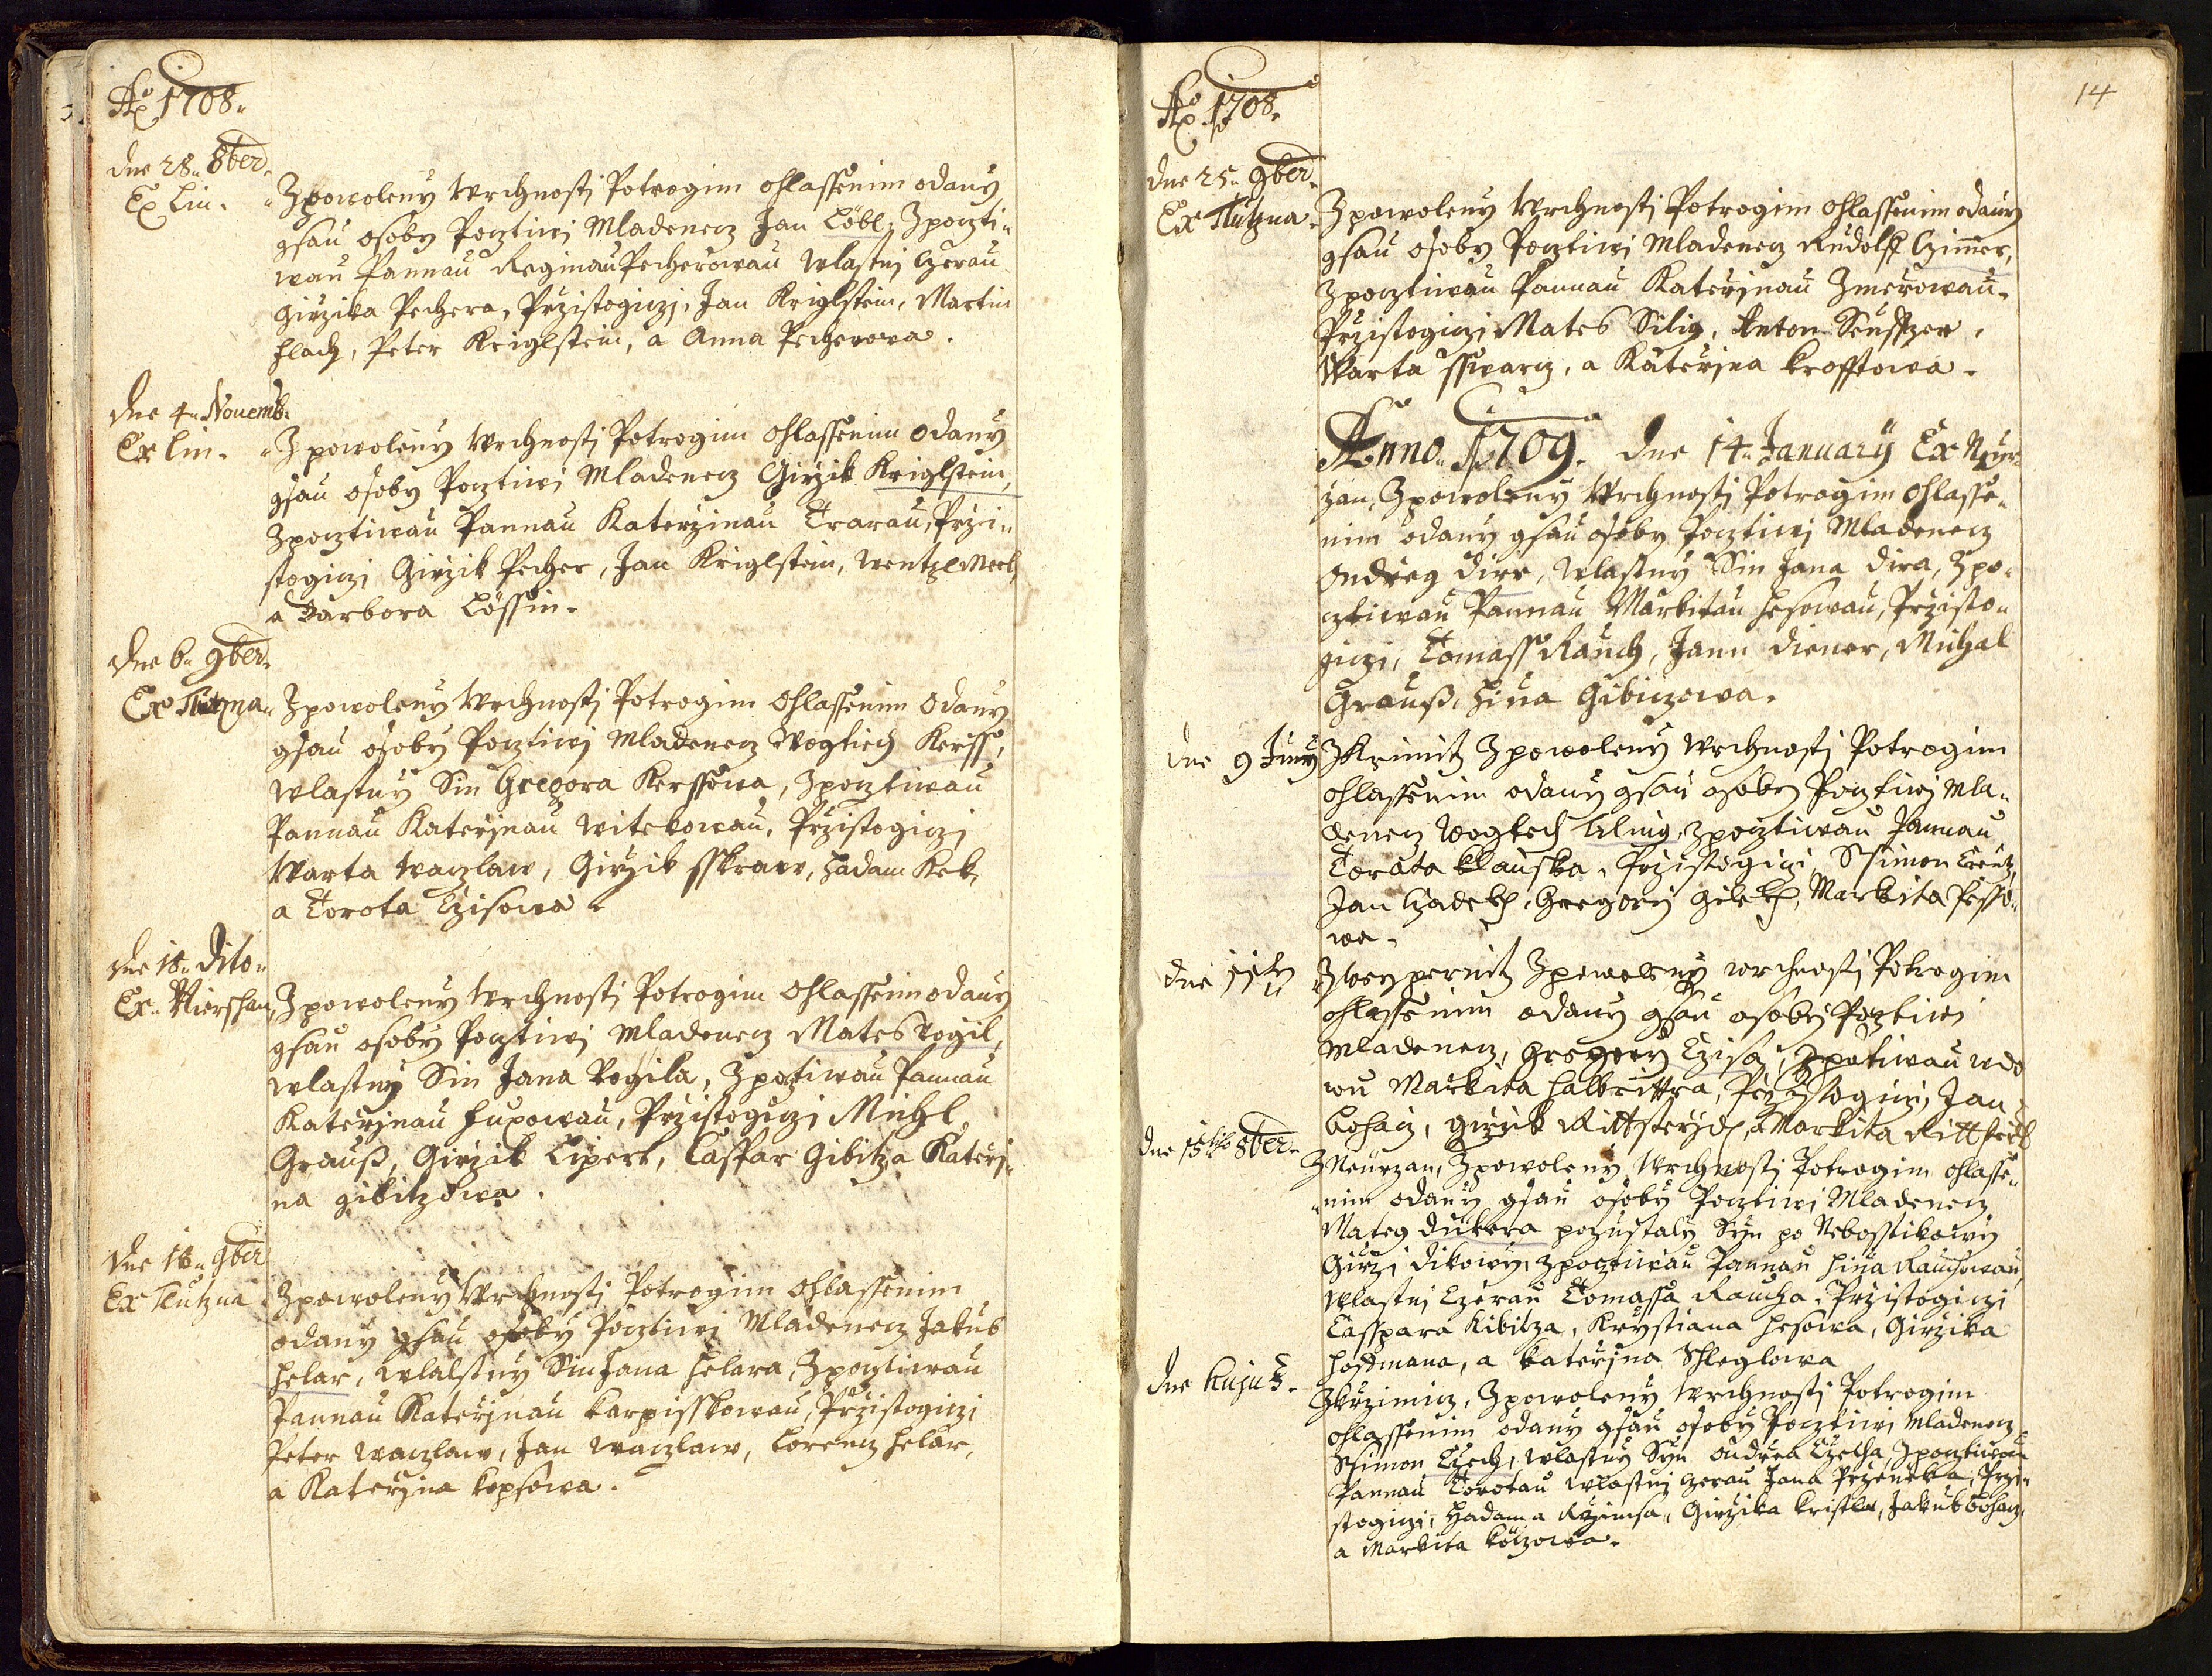 Ao 1708.
dne 28. 8ber.
Ex Lin.
Z powoleny Wrchnosti Potrogim ohlassenim odany
gsau osoby Pocztiwi Mladenecz Jan Löbl, Z poczti-
wau Pannau Reginau Pecherowau wlastni Czerau
Girzika Pechera, Przistogiczi, Jan Kriglstein, Martin
Hlach, Peter Kriglstein, a Anna Pecherowa.
dne 4. Nouemb.
Ex Lin.
Z powoleny Wrchnosti Potrogim ohlassenim odany
gsau osoby Pocztiwi Mladenecz Girzik Kriglstein,
Z pocztiwau Pannau Katerzinau Trarau, Przi-
stogiczi Girzik Pecher, Jan Kriglstein, Wentzl Merl,
a Barbora Lössin.
dne 6. 9ber.
Ex Tlutzna.
Z powoleny Wrchnosti Potrogim ohlassenim odany
gsau osoby Pocztiwi Mladenecz Wogtiech Kerss,
wlastny Sin Gregora Kerssowa, Z pocztiwau
Pannau Katerzinau Witekowau, Przistogiczi
Warta Waczlaw, Girzik sskraw, Hadam Kek,
a Torota Czisowa.
dne 18. dito.
Ex Nierschan
Z powoleny Wrchnosti Potrogim ohlassenim odany
gsau osoby Pocztiwi Mladenecz Mates Rogil,
wlastny Sin Jana Rogila, Z pocztiwau Pannau
Katerzinau Hupowau, Przistogiczi Michl
Grauß, Girzik Lipert, Caspar Gibitz a Kateri-
na gibitzowa.
dne 18. 9ber
Ex Tlutzna
Z powoleny Wrchnosti Potrogim ohlassenim
odany gsau osoby Pocztiwi Mladenecz Jakub
Helar, wlalstny Sin Jana Helara, Z pocztiwau
Pannau Katerzinau Karpisskowau, Przistogiczi
Peter Waczlaw, Jan Waczlaw, Lorencz Helar,
a Katerzina Kopsowa.
14
Ao 1708.
dne 25. 9ber.
Ex Tlutzna.
Z powoleny Wrchnosti Potrogim ohlassenim odany
gsau osoby Pocztiwi Mladenecz Rudolff Czimer,
Z pocztiwau Pannau Katerzinau Zmerowau.
Przistogiczi Mates Silig, Anton
Warta sswarcz, a Katerzina Krofftowa.
Anno. 1709. dne 14. January Ex Nyr-
zan, Z powoleny Wrchnosti Potrogim ohlasse-
nim odany gsau osoby Pocztiwi Mladenecz
Ondreg Dirr, wlastny Sin Jana Dira, Z po-
cztiwau Pannau Markitau Hesowau, Przisto-
giczi, Tomass Rauch, Jann Diener, Michal
Grauß, Lina Gibiczowa.
dne 9 Juny
Z Krimitz Z powoleny Wrchnosti Potrogim
ohlassenim odany gsau osoby Pocztiwi Mla-
denecz Wogtech Ulmig, Z pocztiwau Pannau
Torata Klauska, Przistogiczi Ssimon Creutz,
Jan Hadek, Gregory Gilek, Markita Pisso-
wa.
dne 11ty
Z Weypernitz Z powoleny wrchnosti Potrogim
ohlassenim odany gsau osoby Pocztiwi
Mladenecz, Gregory Czisa, Z pocztiwau wdo
wu Markita Halbrittra, Przistogiczi, Jan
Bohacz, Girzik Rittsteyd, a Markita
dne 15ho 8ber.
Z Neurzan, Z powoleny Wrchnosti Potrogim ohlasse-
nim odany gsau osoby Pocztiwi Mladenecz
Mateg Dickera pozustaly Syn po Nebosstikowy
Girzi Dikowy, Z pocztiwau Pannau Lina Rauchowau,
wlastni Czerau Tomassa Raucha. Przistogiczi
Casspara Kibitza, Krystiana Hesowa, Girzika
Hoffmana, a Katerzina Schleglowa
dne hujus.
Z Krzimicz, Z powoleny Wrchnosti Potrogim
ohlassenim odany gsau osoby Pocztiwi Mladenecz
Ssimon Czech, wlastny Syn Ondrea Czecha, Z pocztiwau
Pannau Torotau wlastni Czerau Jana Przeneka, Przi-
stogiczi, Hadama Krzimsa, Girzika Kristla, Jakub Bohacz,
a Markita Koczowa.